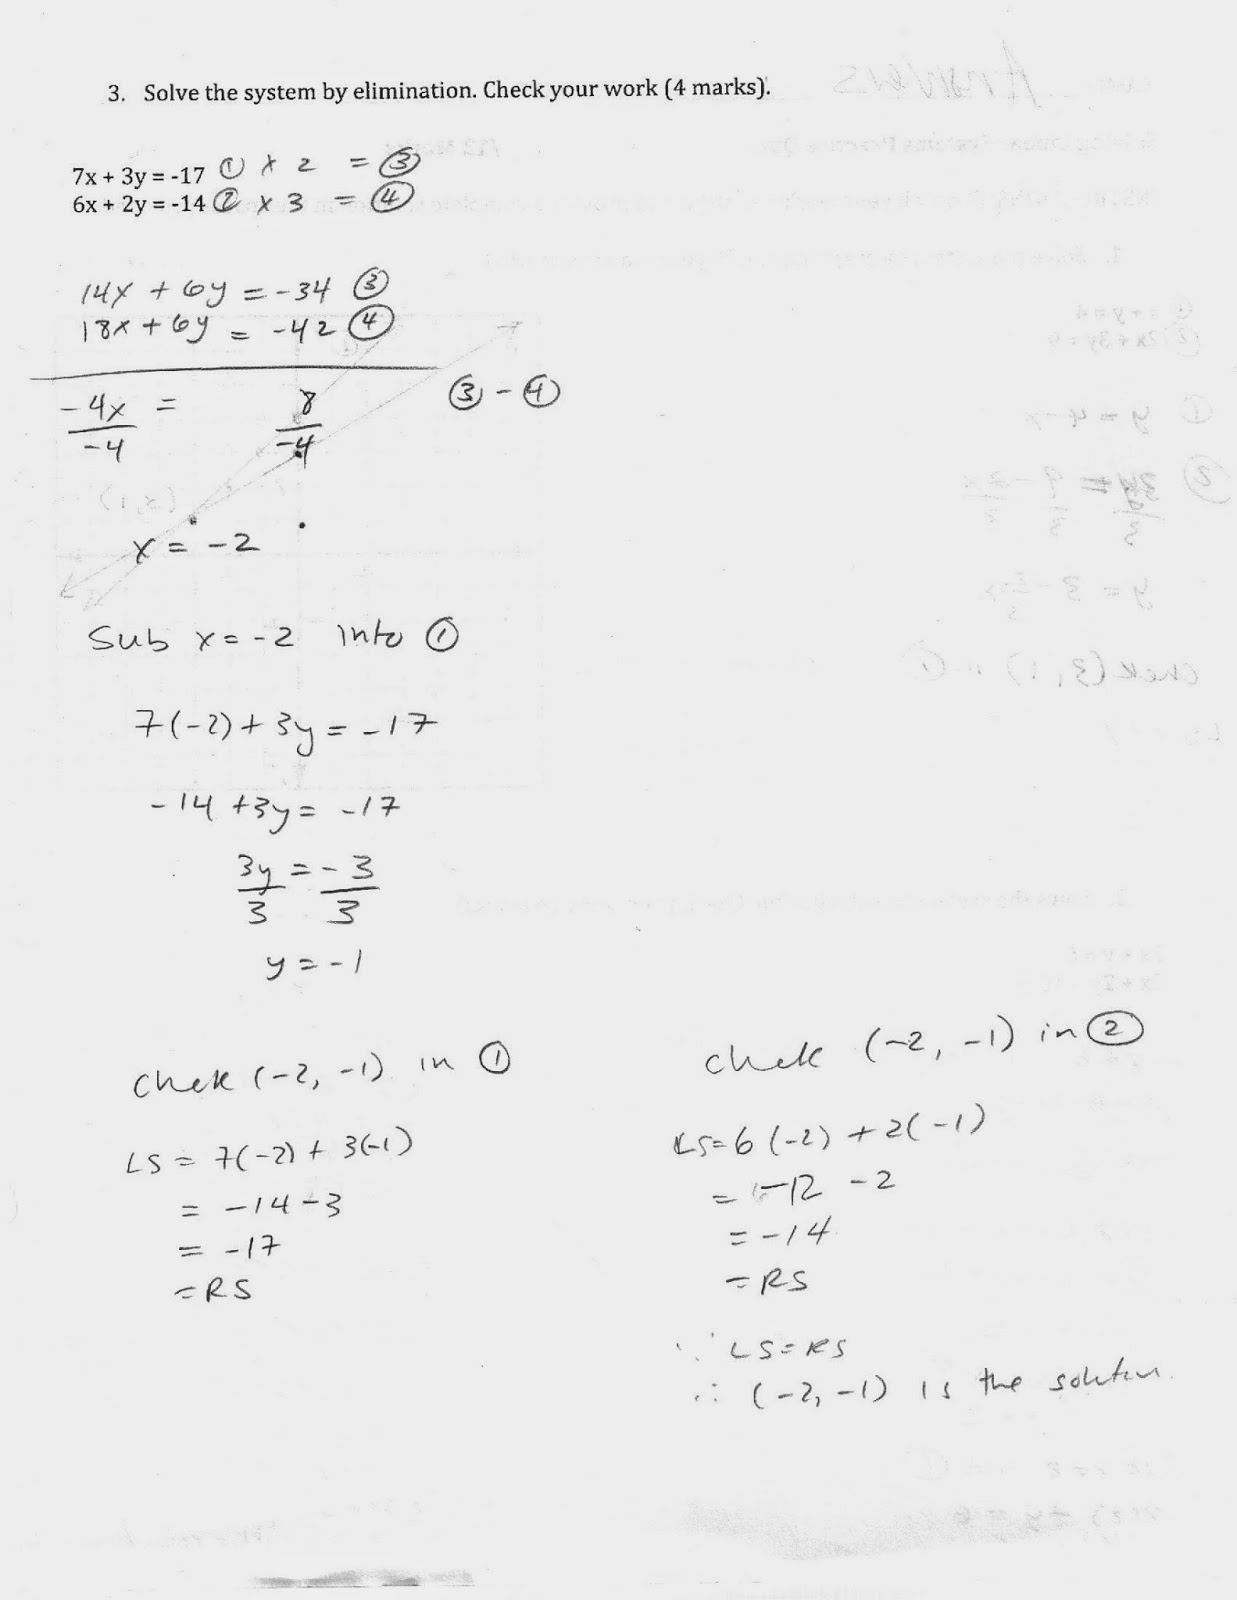 3. Solve the system by elimination. Check your work (4 marks).
7x + 3y = -17 ① x 2 = ③
6x + 2y = -14 ② x 3 = ④
14x + 6y = -34 ③
18x + 6y = -42 ④
-4x = 8 ③ - ④
-4 -4
x = -2
Sub x = -2 into ①
7(-2) + 3y = -17
-14 + 3y = -17
3y = -3
3 3
y = -1
Check (-2, -1) in ①
LS = 7(-2) + 3(-1)
= -14 - 3
= -17
= RS
Check (-2, -1) in ②
LS = 6(-2) + 2(-1)
= -12 - 2
= -14
= RS
∵ LS = RS
∴ (-2, -1) is the solution.